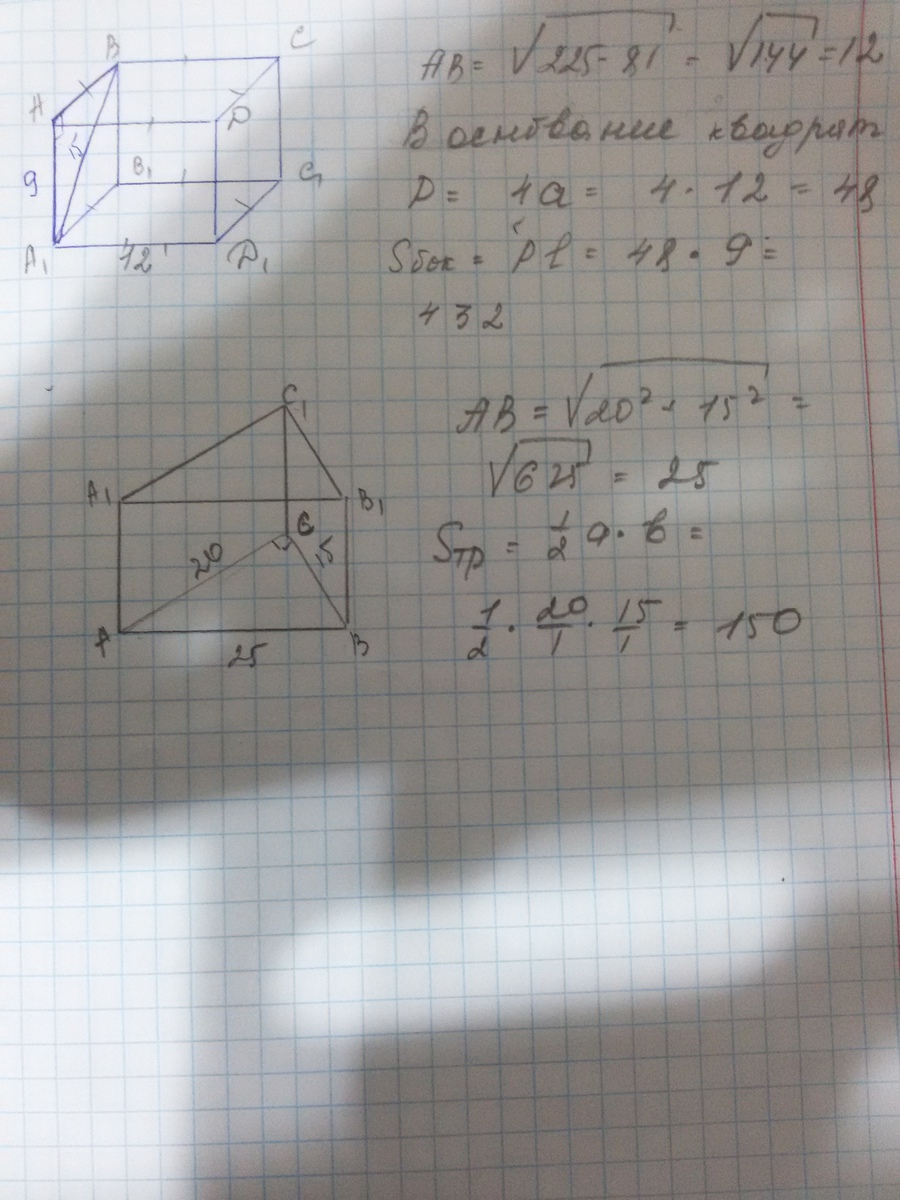 B
C
A
D
9
15
B₁
C₁
A₁
12
D₁
AB = √225-81 = √144 = 12
В оснбвание квадрат
P = 4a = 4 · 12 = 48
Sбок = Pl = 48 · 9 =
432
C₁
A₁
B₁
C
20
15
A
B
25
AB = √20² + 15² =
√625 = 25
Sтр = 1/2 a · b =
1/2 · 20/1 · 15/1 = 150